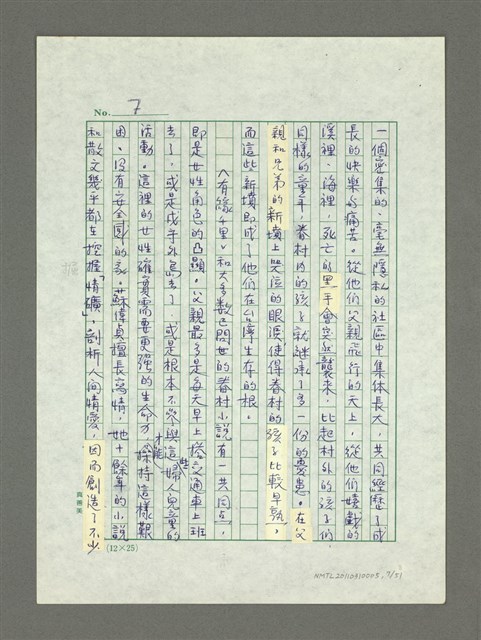 No. 7
一個密集的、毫無隱私的社區中集體長大,共同經歷了成
長的快樂與痛苦。從他們父親飛行的天上,從他們嬉戲的
溪裡、海裡,死亡的黑手會突然襲來,比起村外的孩子們,
同樣的童年,眷村內的孩子就繼承了多一份的憂患。在父
親和兄弟的新墳上哭泣的眼淚使得眷村的孩子比較早熟,
而這些新墳即成了他們在台灣生存的根。
〈有緣千里〉和大多數已問世的眷村小說有一共同点,
即是女性角色的凸顯。父親最多是每天早上搭交通車上班
去了,或是戍守外島去了,或是根本不參與這些婦人兒童的
活動。這裡的女性確實需要更強的生命力才能操持這樣艱
困、沒有安全感的家。蘇偉貞擅長寫情,她十餘年的小說
和散文幾乎都在挖掘「情礦」,剖析人間情愛,因而創造了不少
掘
(12×25)
NMTL20110310005, 7/51